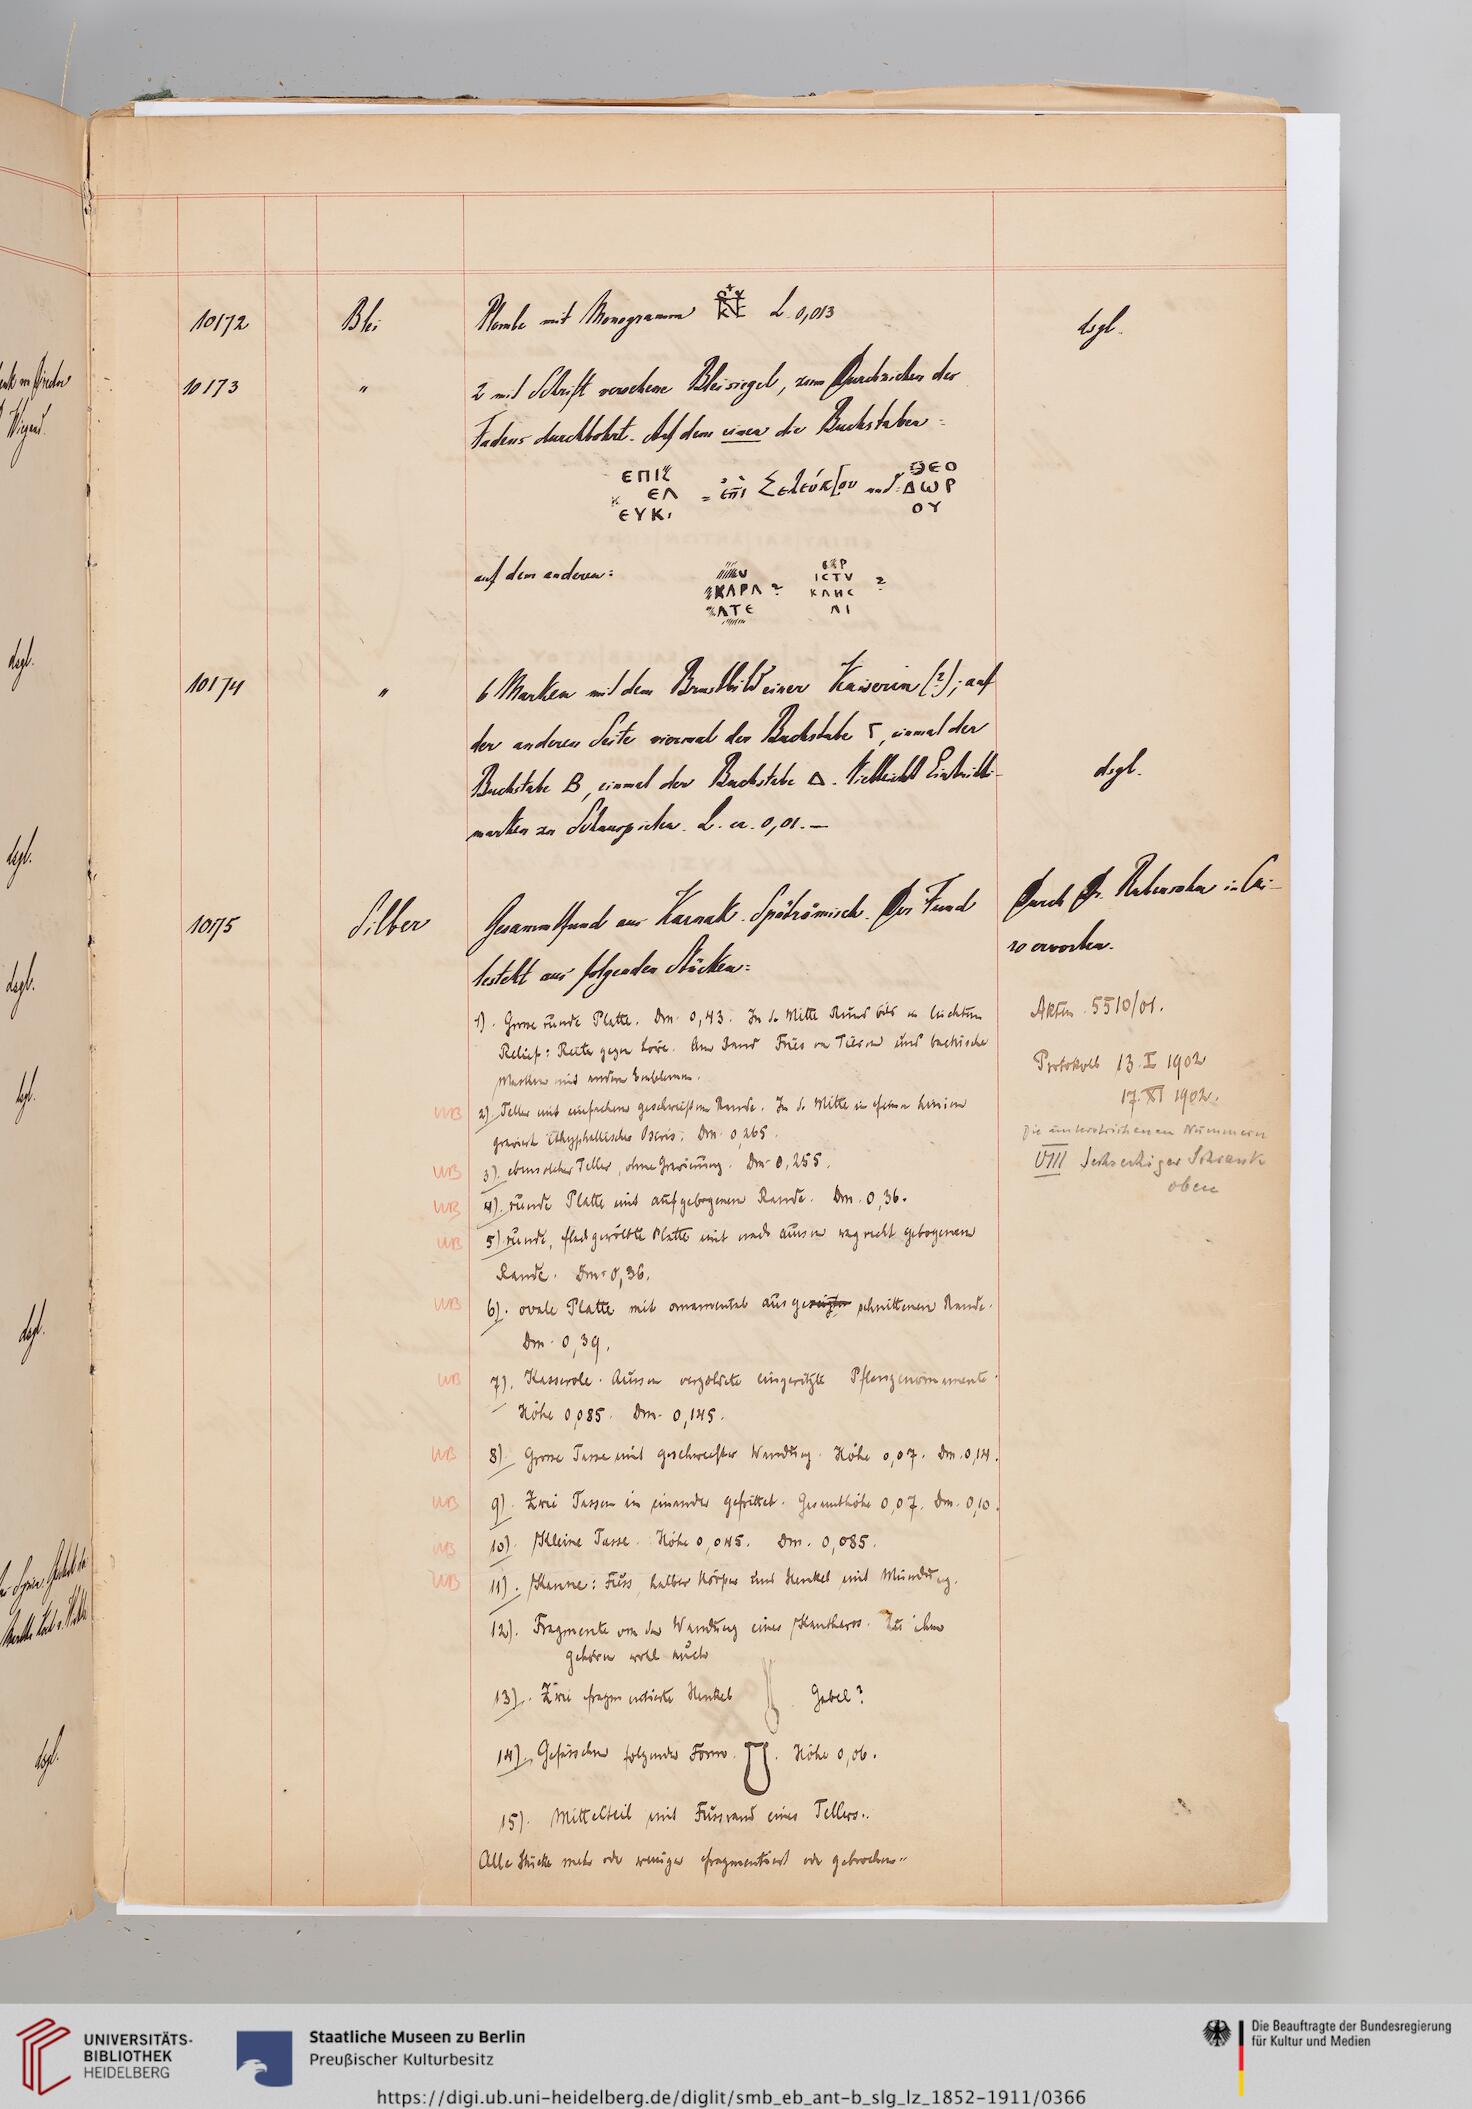 10172 Blei Plombe mit Monogramm L. 0,013 dsgl.
10173 " 2 mit Schrift versehene Bleisiegel, zum Durchziehen des
Fadens durchbohrt. Auf dem einen die Buchstaben:
ΕΠΙΣ
ΕΛ
ΕΥΚΙ
= ἐπὶ Σελεύκ[ου und
ΘΕΟ
ΔΩΡ
ΟΥ
auf dem anderen:
ΚΑΡΛ ?
ΑΤΕ
ΙCΤV
ΚΛΗC
ΛΙ
?
10174 " 6 Marken mit dem Brustbild einer Kaiserin (?); auf
der anderen Seite viermal der Buchstabe Γ, einmal der
Buchstabe B, einmal der Buchstabe Δ. Vielleicht Eintritts-
marken zu Schauspielen. L. ca. 0,01. —
dsgl.
10175 Silber Gesammtfund aus Karnak. Spätrömisch. Der Fund
besteht aus folgenden Stücken:
Durch Dr. Rubensohn in Cai-
ro erworben.
Akten 5510/01.
Protokoll 13. I 1902
17. XI 1902.
Die unterstrichenen Nummern
VIII Sechseckiger Schrank
oben
1). Grosse runde Platte. Dm. 0,43. In d. Mitte Rundbild in leichtem
Relief: Reiter gegen Löwe. Am Rand Fries von Tieren und backische
Masken und andern Emblemen.
WB 2) Teller mit einfachem geschweiften Rande. In d. Mitte in feinen Linien
graviert ithyphallischer Osiris. Dm. 0,265.
WB 3). ebensolcher Teller, ohne Gravierung. Dm. 0,255.
WB 4). runde Platte mit aufgebogenem Rande. Dm. 0,36.
WB 5) runde, flachgewölbte Platte mit nach aussen wagrecht gebogenem
Rande. Dm. 0,36.
WB 6). ovale Platte mit ornamental ausge schnittenem Rande.
Dm. 0,39.
WB 7). Kasserole. Aussen vergoldete eingeritzte Pflanzenornamente.
Höhe 0,085. Dm. 0,145.
WB 8). Grosse Tasse mit geschweifter Wandung. Höhe 0,07. Dm. 0,14.
WB 9). Zwei Tassen in einander gefrittet. Gesamthöhe 0,07. Dm. 0,10.
WB 10). Kleine Tasse. Höhe 0,045. Dm. 0,085.
WB 11). Kanne: Fuss, halber Körper und Henkel mit Mündung.
12). Fragmente von der Wandung eines Kantharos. Zu ihm
gehören wohl auch
13). Zwei fragmentierte Henkel. Gabel?
14). Gefässchen folgender Form. Höhe 0,06.
15). Mittelteil mit Fussrand eines Tellers.
Alle Stücke mehr oder weniger fragmentiert oder gebrochen.
dsgl.
dsgl.
dsgl.
dsgl.
dsgl.
dsgl.
UNIVERSITÄTS-
BIBLIOTHEK
HEIDELBERG
Staatliche Museen zu Berlin
Preußischer Kulturbesitz
Die Beauftragte der Bundesregierung
für Kultur und Medien
https://digi.ub.uni-heidelberg.de/diglit/smb_eb_ant-b_slg_lz_1852-1911/0366